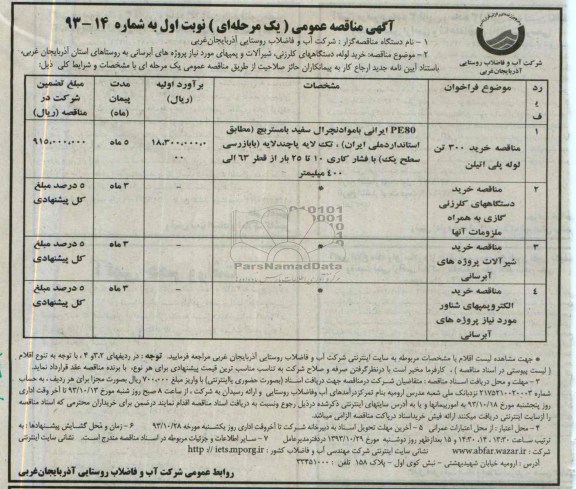 آگهی مناقصه عمومی ( یک مرحله‌ای ) نوبت اول به شماره ۱۴-۹۳
شرکت آب و فاضلاب روستایی
آذربایجان‌غربی
۱ - نام دستگاه مناقصه‌گزار : شرکت آب و فاضلاب روستایی آذربایجان‌غربی
۲ - موضوع مناقصه: خرید لوله، دستگاههای کلرزنی، شیرآلات و پمپهای مورد نیاز پروژه های آبرسانی به روستاهای استان آذربایجان غربی،
باستناد آیین نامه جدید ارجاع کار به پیمانکاران حائز صلاحیت از طریق مناقصه عمومی یک مرحله ای با مشخصات و شرایط کلی ذیل:
ردیف
موضوع فراخوان
مشخصات
برآورد اولیه (ریال)
مدت پیمان (ماه)
مبلغ تضمین شرکت در مناقصه (ریال)
۱
مناقصه خرید ۳۰۰ تن
لوله پلی اتیلن
PE80 ایرانی باموادنچرال سفید بامستربچ (مطابق
استانداردملی ایران) ، تک لایه یاچندلایه (بابازرسی
سطح یک) با فشار کاری ۱۰ تا ۲۵ بار از قطر ۶۳ الی
۴۰۰ میلیمتر
۱۸،۳۰۰،۰۰۰،۰۰۰
۵ ماه
۹۱۵،۰۰۰،۰۰۰
۲
مناقصه خرید
دستگاههای کلرزنی
گازی به همراه
ملزومات آنها
*
-
۳ ماه
۵ درصد مبلغ
کل پیشنهادی
۳
مناقصه خرید
شیرآلات پروژه های
آبرسانی
*
-
۳ ماه
۵ درصد مبلغ
کل پیشنهادی
۴
مناقصه خرید
الکتروپمپهای شناور
مورد نیاز پروژه های
آبرسانی
*
-
۳ ماه
۵ درصد مبلغ
کل پیشنهادی
ParsNamadData
* جهت مشاهده لیست اقلام با مشخصات مربوطه به سایت اینترنتی شرکت آب و فاضلاب روستایی آذربایجان غربی مراجعه فرمایید. توجه : در ردیفهای ۲،۳ و ۴ ، با توجه به تنوع اقلام
( لیست پیوستی در اسناد مناقصه ) ، کارفرما مخیر است با درنظرگرفتن صرفه و صلاح شرکت به تناسب مناسب ترین قیمت پیشنهادی برای هر نوع، با برنده مناقصه عقد قرارداد نماید.
۳ - مهلت و محل دریافت اسناد مناقصه : متقاضیان شرکت درمناقصه جهت دریافت اسناد (بصورت حضوری یااینترنتی) با واریز مبلغ ۷۰۰،۰۰۰ ریال بصورت مجزا برای هر ردیف، به حساب
شماره ۲۱۷۵۲۱۰۰۲۰۰۳ نزدبانک ملی شعبه مدرس ارومیه بنام تمرکزدرآمدهای آب وفاضلاب روستایی و ارائه رسیدن به شرکت، از ساعت ۸ صبح روز شنبه مورخ ۹۳/۱۰/۱۳ تا آخر وقت اداری
روز پنجشنبه مورخ ۹۳/۱۰/۱۸ به امورپیمانها و یا به آدرس سایتهای اینترنتی ذکرشده درذیل رجوع ونسبت به دریافت اسناد مناقصه اقدام نمایند درضمن برای خریداران محترمی که اسناد مناقصه
را ازسایت اینترنتی دریافت میکنند ارائه فیش خریداسناد درپاکت مناقصه الزامی میباشد.
۴ - محل اعتبار : از محل اعتبارات عمرانی ۵ - آخرین مهلت تحویل اسناد به دبیرخانه شرکت تا آخروقت اداری روز یکشنبه مورخه ۹۳/۱۰/۲۸ ۶ - زمان و محل گشایش پیشنهادها : به
ترتیب ساعات ۱۳:۳۰، ۱۴، ۱۴:۳۰ و ۱۵ بعدازظهر روز دوشنبه مورخ ۱۳۹۳/۱۰/۲۹ دردفترمدیرعامل ۷ - سایر اطلاعات و جزئیات مربوطه در اسناد مناقصه مندرج است. نشانی سایت اینترنتی
شرکت : www.abfar.wazar.ir نشانی سایت اینترنتی شرکت مهندسی آب و فاضلاب کشور : http:// iets.mporg.ir
آدرس : ارومیه خیابان شهیدبهشتی - نبش کوی اول - پلاک ۱۵۸ تلفن : ۳۳۴۵۱۰۰۰
روابط عمومی شرکت آب و فاضلاب روستایی آذربایجان‌غربی